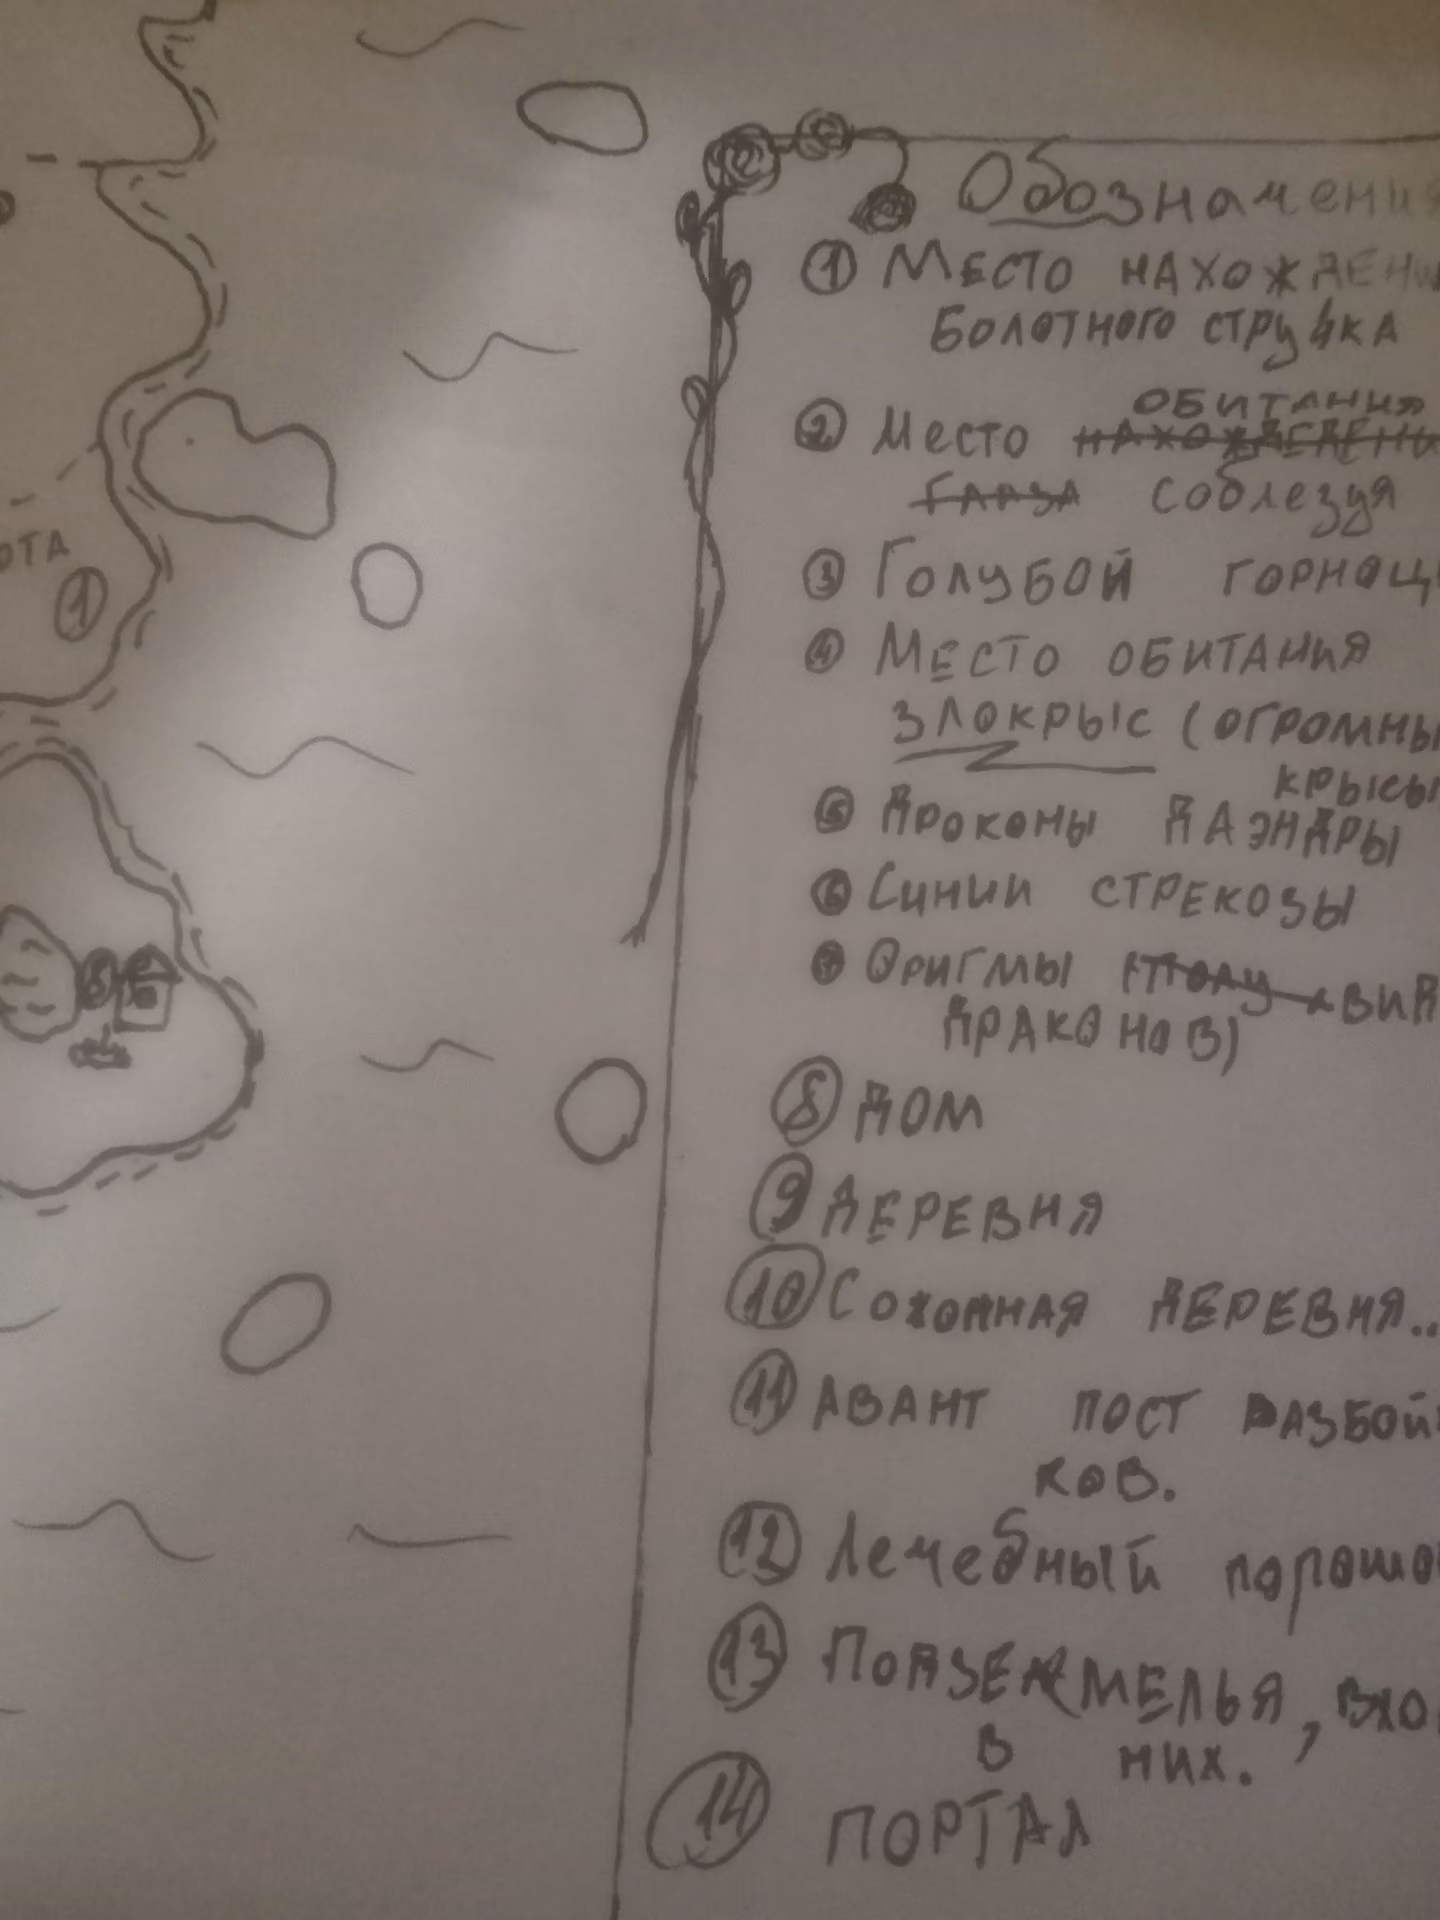 Обозначения
① Место нахождени
болотного стручка
обитания
② Место
Саблезуя
③ Голубой горноц
④ Место обитания
злокрыс (огромны
крысы
⑤ Дроконы Даэндры
⑥ Синии стрекозы
⑦ Оригмы вид
драконов)
⑧ Дом
⑨ Деревня
⑩ деревня..
⑪ Авант пост разбой
ков.
⑫ Лечебный порошо
⑬ Подземелья, вхо
в них.
⑭ Портал
ота
①
8